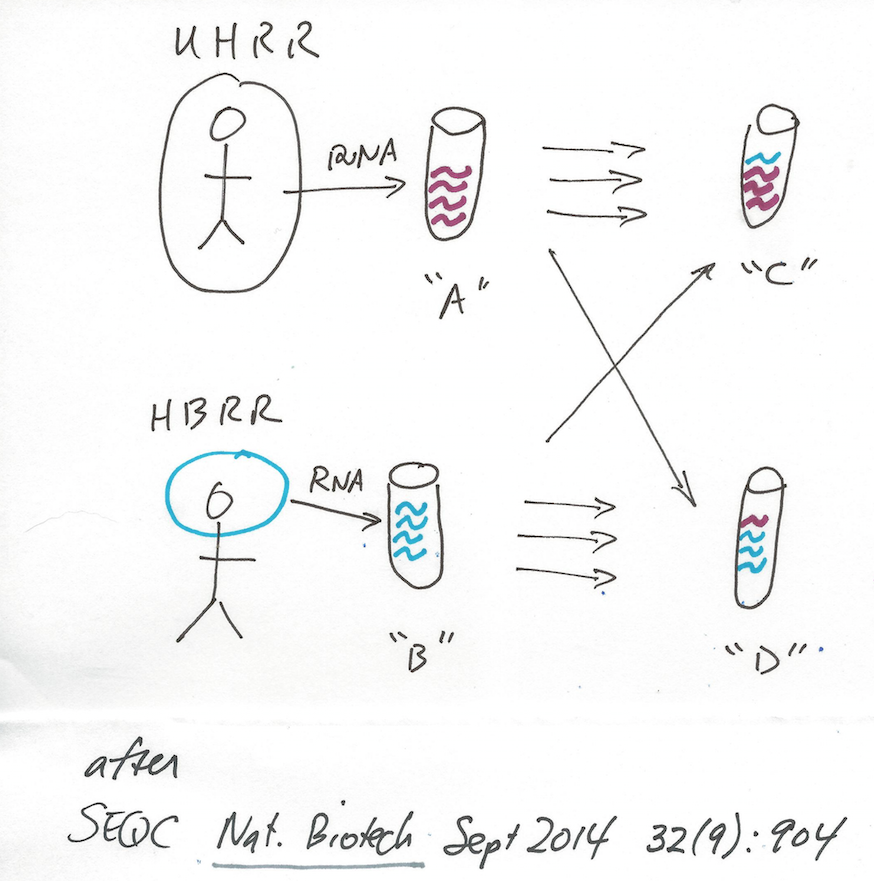 UHRR
RNA
"A"
"C"
HBRR
RNA
"B"
"D"
after
SEQC Nat. Biotech Sept 2014 32(9): 904